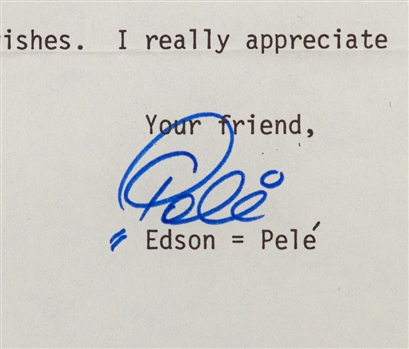 ishes. I really appreciate
Your friend,
Pelé
Edson = Pelé